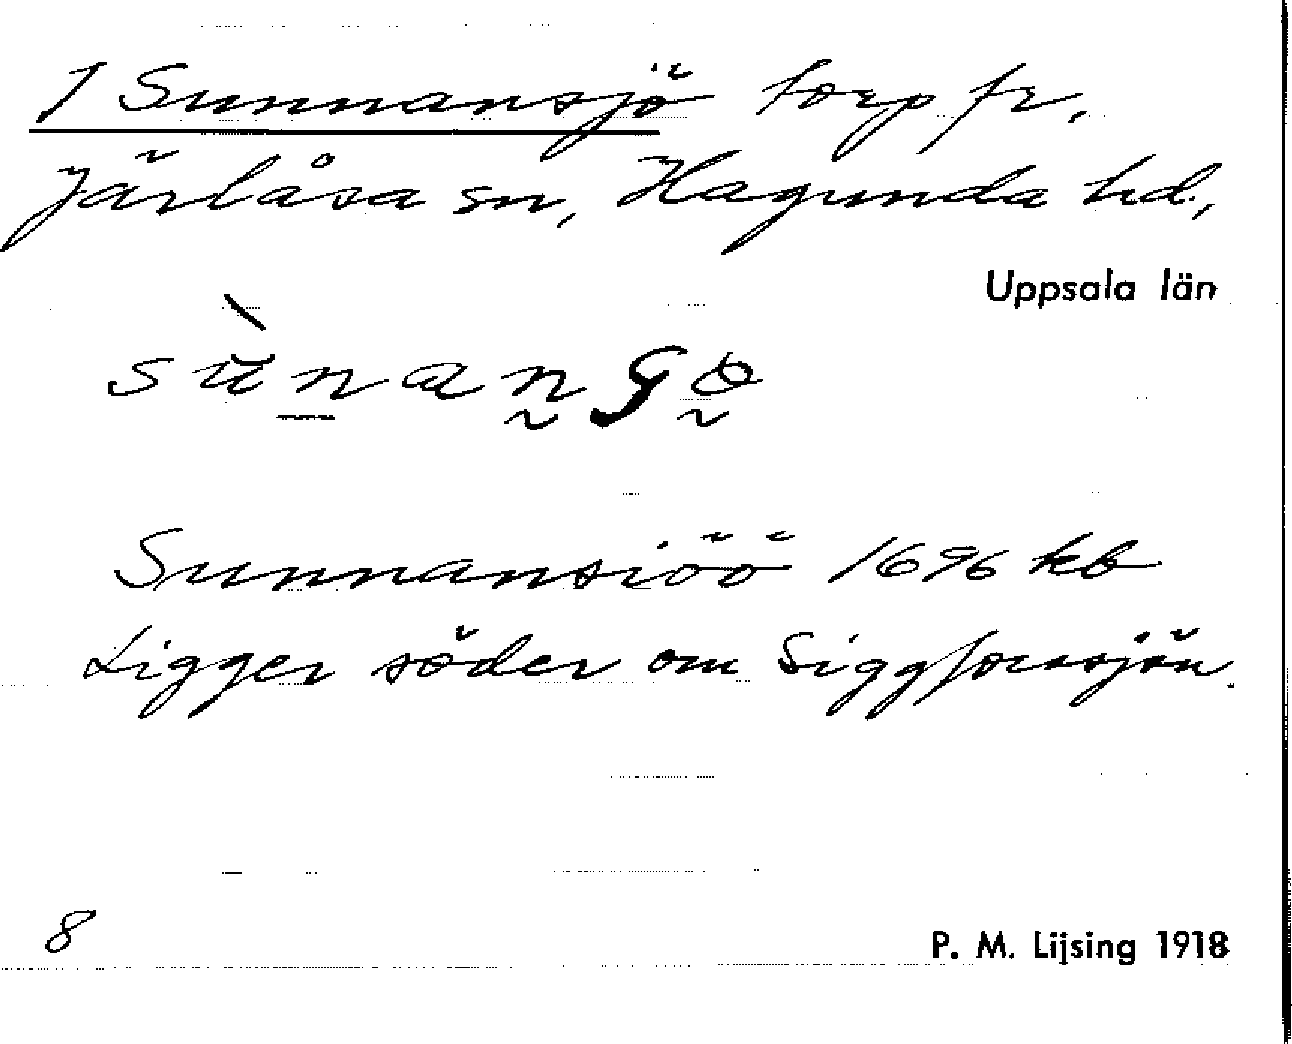 1 Sunnansjö torp fr,
Järlåsa sn, Hagunda hd,
Uppsala län
Sunnansiöö 1696 kb
Ligger söder om Siggforasjön.
8
P. M. Lijsing 1918